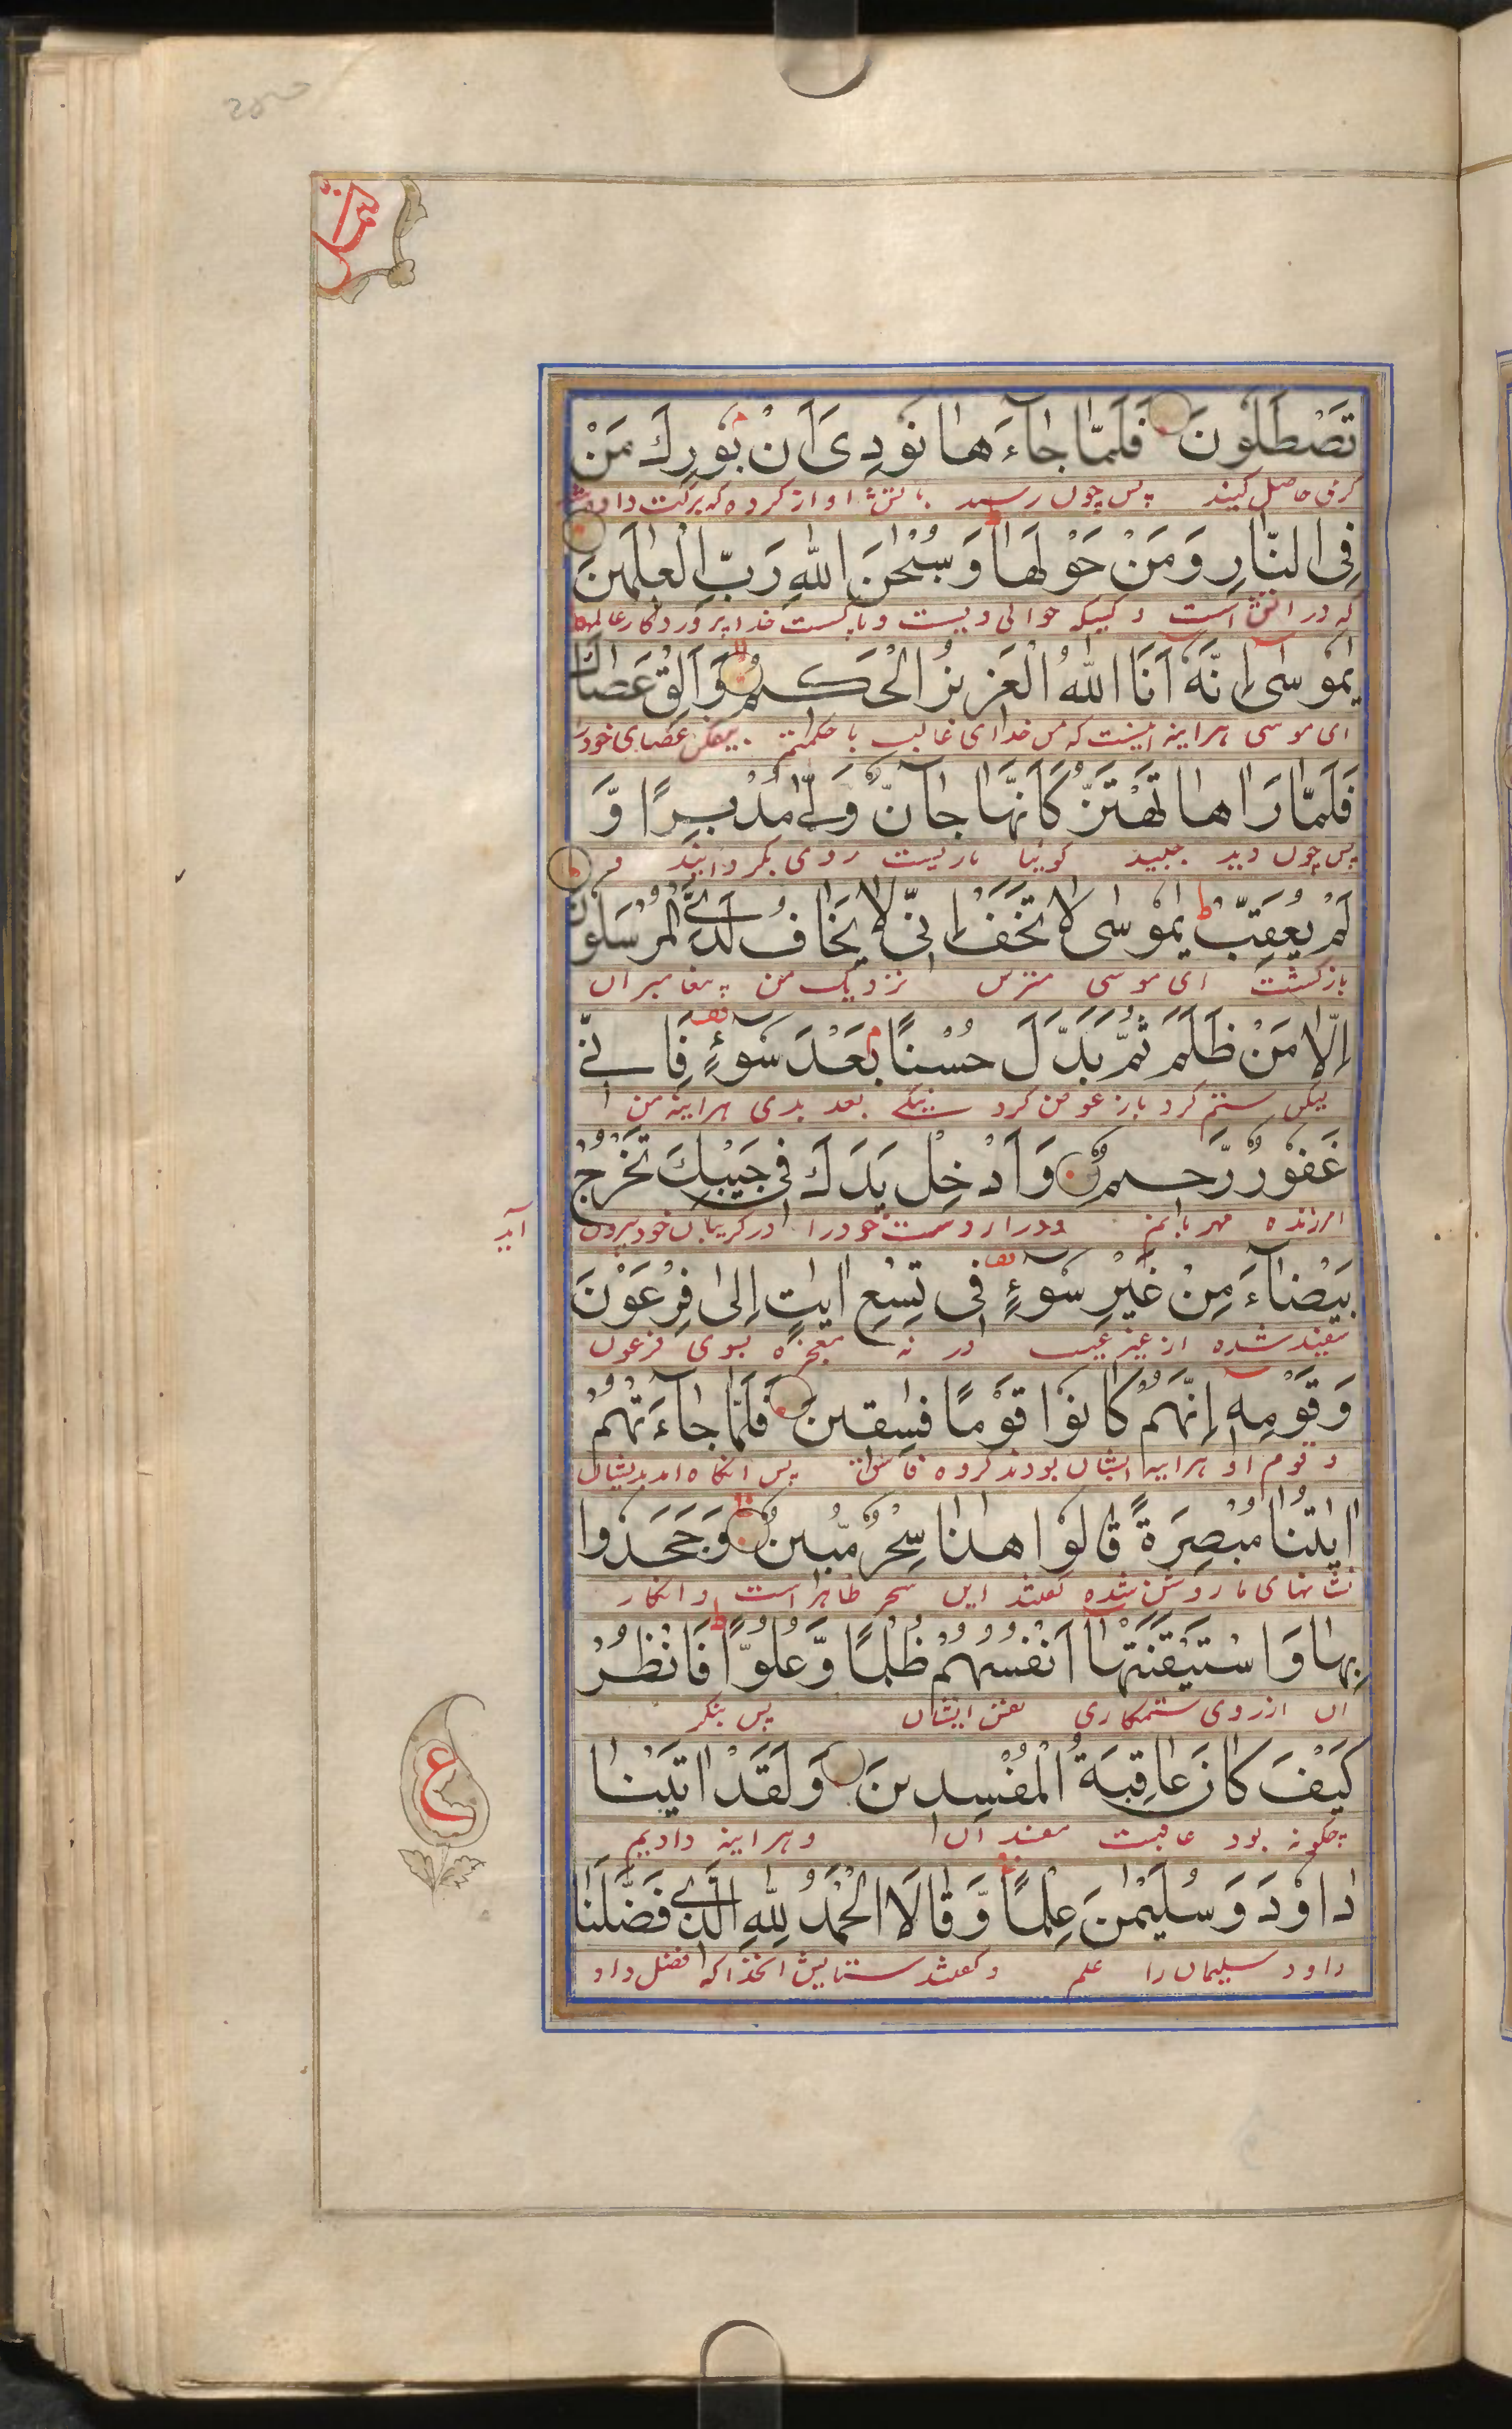 تَصْطَلُوْنَ فَلَمَّا جَآءَهَا نُوْدِیَ اَنْ بُوْرِكَ مَنْ
گرمی حاصل کنید پس چون رسید باتش اواز کرده که برکت داده شد
فِی النَّارِ وَمَنْ حَوْلَهَا وَسُبْحٰنَ اللّٰهِ رَبِّ الْعٰلَمِیْنَ
که در اتش است و کسیکه حوالی ویست و پاکست خدا پروردکار عالمها
یٰمُوْسٰی اِنَّهٗ اَنَا اللّٰهُ الْعَزِیْزُ الْحَكِیْمُ وَاَلْقِ عَصَاكَ
ای موسی هراینه اینست که من خدای غالب با حکمتم بیفکن عصای خودرا
فَلَمَّا رَاٰهَا تَهْتَزُّ كَاَنَّهَا جَآنٌّ وَّلّٰی مُدْبِرًا وَّ
پس چون دید جنبید کوئیا ماریست روی بکردانید و
لَمْ یُعَقِّبْ یٰمُوْسٰی لَا تَخَفْ اِنِّیْ لَا یَخَافُ لَدَیَّ الْمُرْسَلُوْنَ
بازکشت ای موسی مترس نزدیک من پیغامبران
اِلَّا مَنْ ظَلَمَ ثُمَّ بَدَّلَ حُسْنًا بَعْدَ سُوْٓءٍ فَاِنِّیْ
لیکن ستم کرد باز عوض کرد نیکی بعد بدی هراینه من
غَفُوْرٌ رَّحِیْمٌ وَاَدْخِلْ یَدَكَ فِیْ جَیْبِكَ تَخْرُجْ
امرزنده مهربانم ودرار دست خودرا در کریبان خود بیرون آید
بَیْضَآءَ مِنْ غَیْرِ سُوْٓءٍ فِیْ تِسْعِ اٰیٰتٍ اِلٰی فِرْعَوْنَ
سفید شده از غیر عیب در نه معجزه بسوی فرعون
وَقَوْمِهٖ اِنَّهُمْ كَانُوْا قَوْمًا فٰسِقِیْنَ فَلَمَّا جَآءَتْهُمْ
و قوم او هراینه ایشان بودند کروه فاسقان پس انکاه امد بدیشان
اٰیٰتُنَا مُبْصِرَةً قَالُوْا هٰذَا سِحْرٌ مُّبِیْنٌ وَجَحَدُوْا
نشانهای ما روشن شده کفتند این سحر ظاهر است و انکار
بِهَا وَاسْتَیْقَنَتْهَا اَنْفُسُهُمْ ظُلْمًا وَّعُلُوًّا فَانْظُرْ
ان ازروی ستمکاری نفس ایشان پس بنکر
كَیْفَ كَانَ عَاقِبَةُ الْمُفْسِدِیْنَ وَلَقَدْ اٰتَیْنَا
چکونه بود عاقبت مفسدان وهراینه دادیم
دَاوٗدَ وَسُلَیْمٰنَ عِلْمًا وَّقَالَا الْحَمْدُ لِلّٰهِ الَّذِیْ فَضَّلَنَا
داود سلیمان را علم و کفتند ستایش انخدا که فضل داد
ع